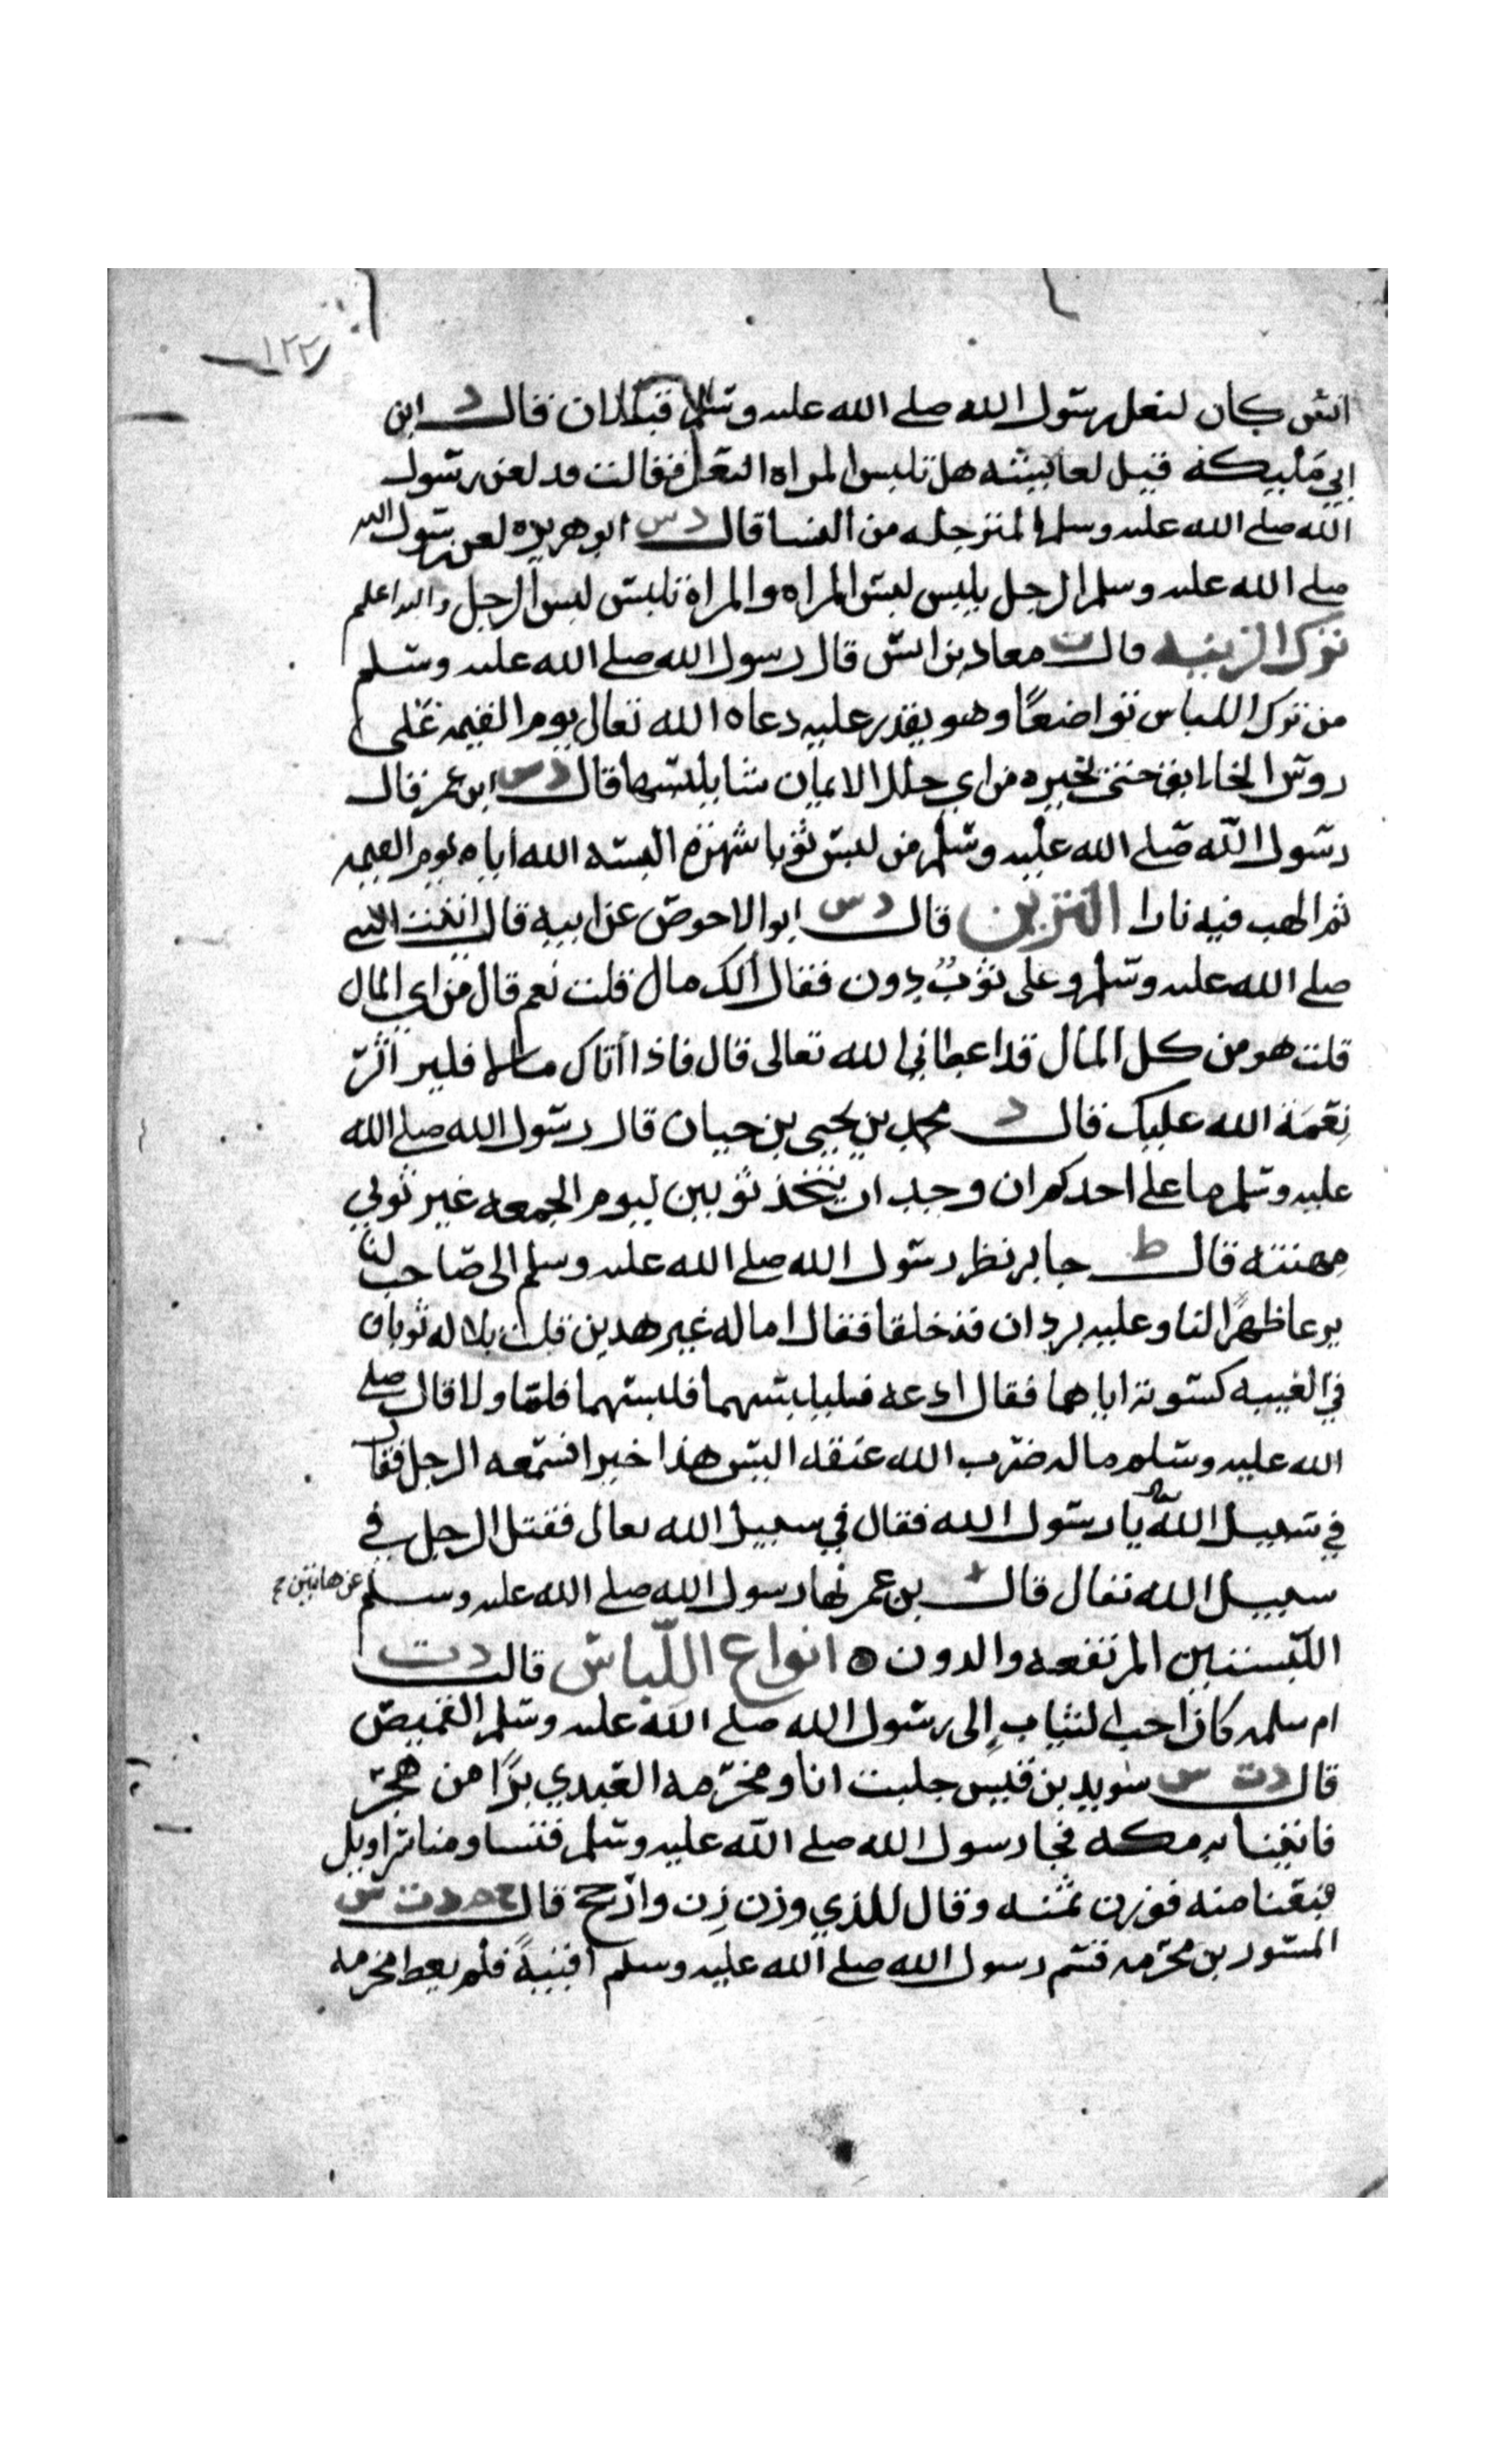 ١٢٢
انس كان لنعل رسول الله صلى الله عليه وسلم قبالان قال د ابن
ابي مليكة قيل لعايشه هل تلبس المراه النعل فقالت قد لعن رسول
الله صلى الله عليه وسلم المترجله من النسا قال د س ابو هريره لعن رسول الله
صلى الله عليه وسلم الرجل يلبس لبس المراه والمراة تلبس لبس الرجل والله اعلم
ترك الزينه قال ت معاد بن انس قال رسول الله صلى الله عليه وسلم
من ترك اللباس تواضعًا وهو يقدر عليه دعاه الله تعالى يوم القيمه على
روس الخلايق حتى يخيره من اي حلل الايمان شا يلبسها قال د س ابن عمر قال
رسول الله صلى الله عليه وسلم من لبس ثوبا شهرة البسه الله اياه يوم القيمه
ثم الهب فيه نارا التزين قال د س ابو الاحوص عن ابيه قال اتيت النبي
صلى الله عليه وسلم وعلى ثوبٌ دون فقال ألك مال قلت نعم قال من اي المال
قلت هو من كل المال قد اعطاني الله تعالى قال فاذا أتاك مالا فلير أثر
نِعْمَة الله عليك قال د محمد بن يحيى بن حبان قال رسول الله صلى الله
عليه وسلم ما على احدكم ان وجد ان يتخذ ثوبين ليوم الجمعه غير ثوبي
مهنته قال ط جابر نظر رسول الله صلى الله عليه وسلم الى صاحب لنا
يرعا ظهرًا لنا وعليه بردان قد خلقا فقال اما له غير هدين قلت بلا له ثوبان
في العيبه كسوته اياهما فقال ادعه فليلبسهما فلبسهما فلما ولا قال صلى
الله عليه وسلم ماله ضرب الله عنقه اليس هذا خيرا فسمعه الرجل فقال
في سبيل الله يا رسول الله فقال في سبيل الله تعالى فقتل الرجل في
سبيل الله تعال قال بن عمر نها رسول الله صلى الله عليه وسلم عن هاتين
اللبستين المرتفعه والدون ه انواع اللّباس قال د ت
ام سلمه كان احب الثياب إلى رسول الله صلى الله عليه وسلم القميص
قال د ت س سويد بن قيس جلبت انا ومخرمه العبدي بزًا من هجر
فاتينا به مكه فجا رسول الله صلى الله عليه وسلم فتسا ومنا سراويل
فبعنا منه فوزن ثمنه وقال للذي وزن زِن وارجح قال خ م د ت س
المسور بن مخرمه قسم رسول الله صلى الله عليه وسلم أقبيةً فلم يعط مخرمه